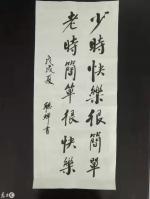 少時快樂很簡單
老時簡單很快樂
戊戌夏